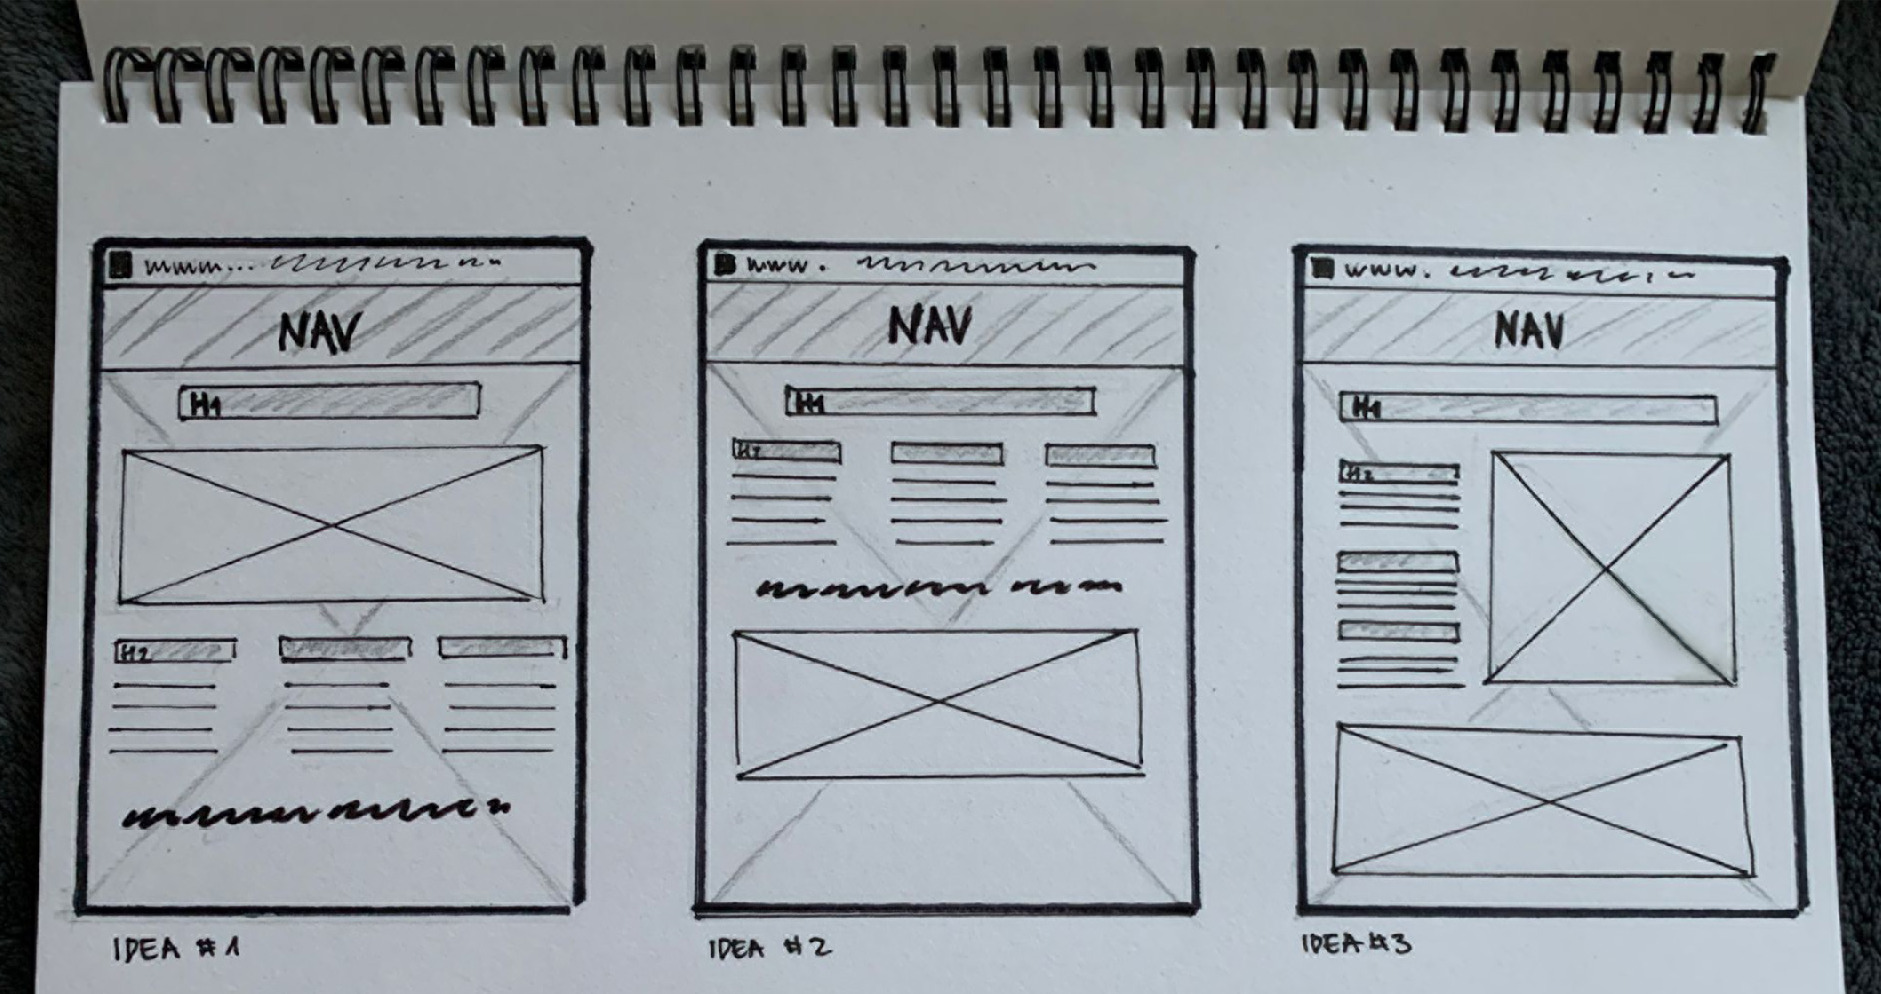 NAV
H1
H2
IDEA #1
www.
NAV
H1
H2
IDEA #2
www.
NAV
H1
H2
IDEA #3